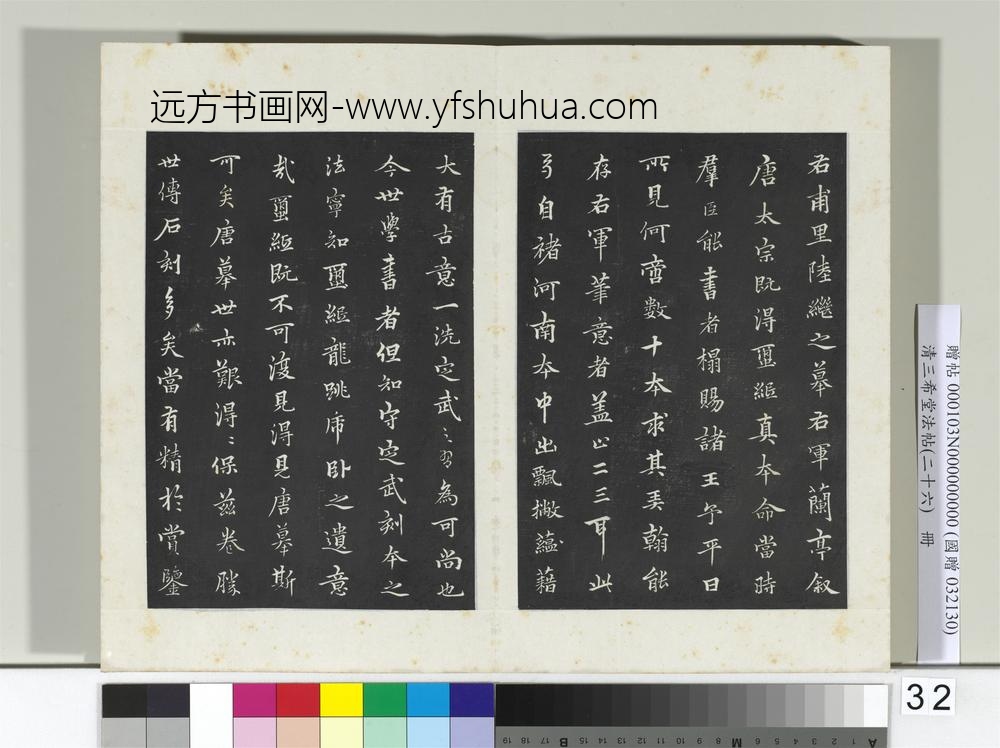 远方书画网-www.yfshuhua.com
右甫里陸繼之摹右軍蘭亭叙
唐太宗既得璽紙真本命當時
羣臣能書者榻賜諸王予平日
所見何啻數十本求其美翰能
存右軍筆意者盖止二三耳此
弓自褚河南本中出飄撇蘊藉
大有古意一洗定武之習為可尚也
今世學書者但知守定武刻本之
法寧知璽紙龍跳虎卧之遺意
哉璽紙既不可復見得見唐摹斯
可矣唐摹世亦艱得得保兹卷勝
世傳石刻多矣當有精於賞鑒
贈帖 000103N000000000 (國贈 032130)
清三希堂法帖(二十六) 冊
32
A 1 2 3 4 5 6 M 8 9 10 11 12 13 14 15 B 17 18 19